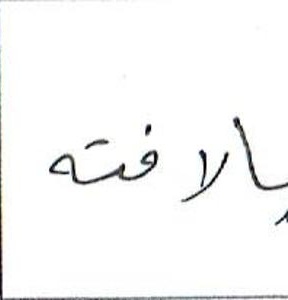 بالافته